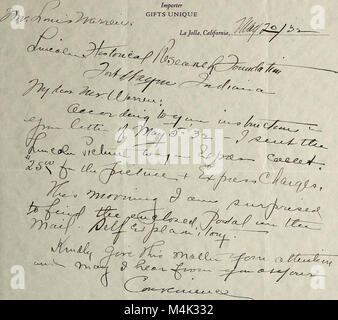 Mr. Louis Warren.
Importer
GIFTS UNIQUE
La Jolla, California, May 20/32
Lincoln Historical Research Foundation
Fort Wayne Indiana
My dear Mr Warren:
According to your instructions in
your letter of May 5-32 - I sent the
Lincoln Picture Express collect.
$25.00 for the picture & Express Charges.
This morning I am surprised
to find the enclosed Postal in the
Mail. Self Explanitory.
Kindly give this matter your attention
and may I hear from you at your
Convenience
alamy
Image ID: M4K332
www.alamy.com